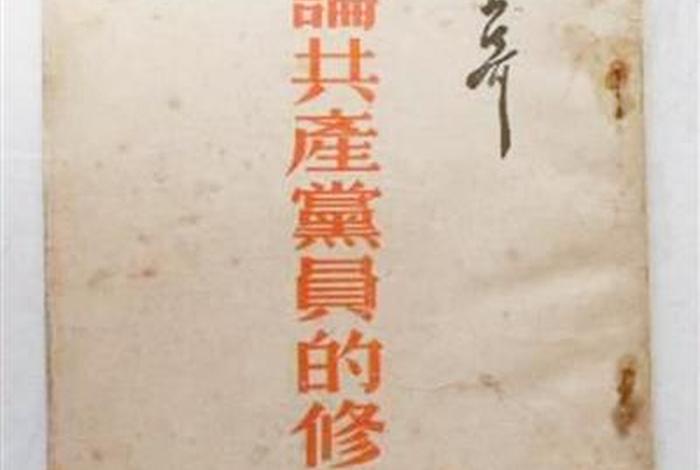 論共產黨員的修